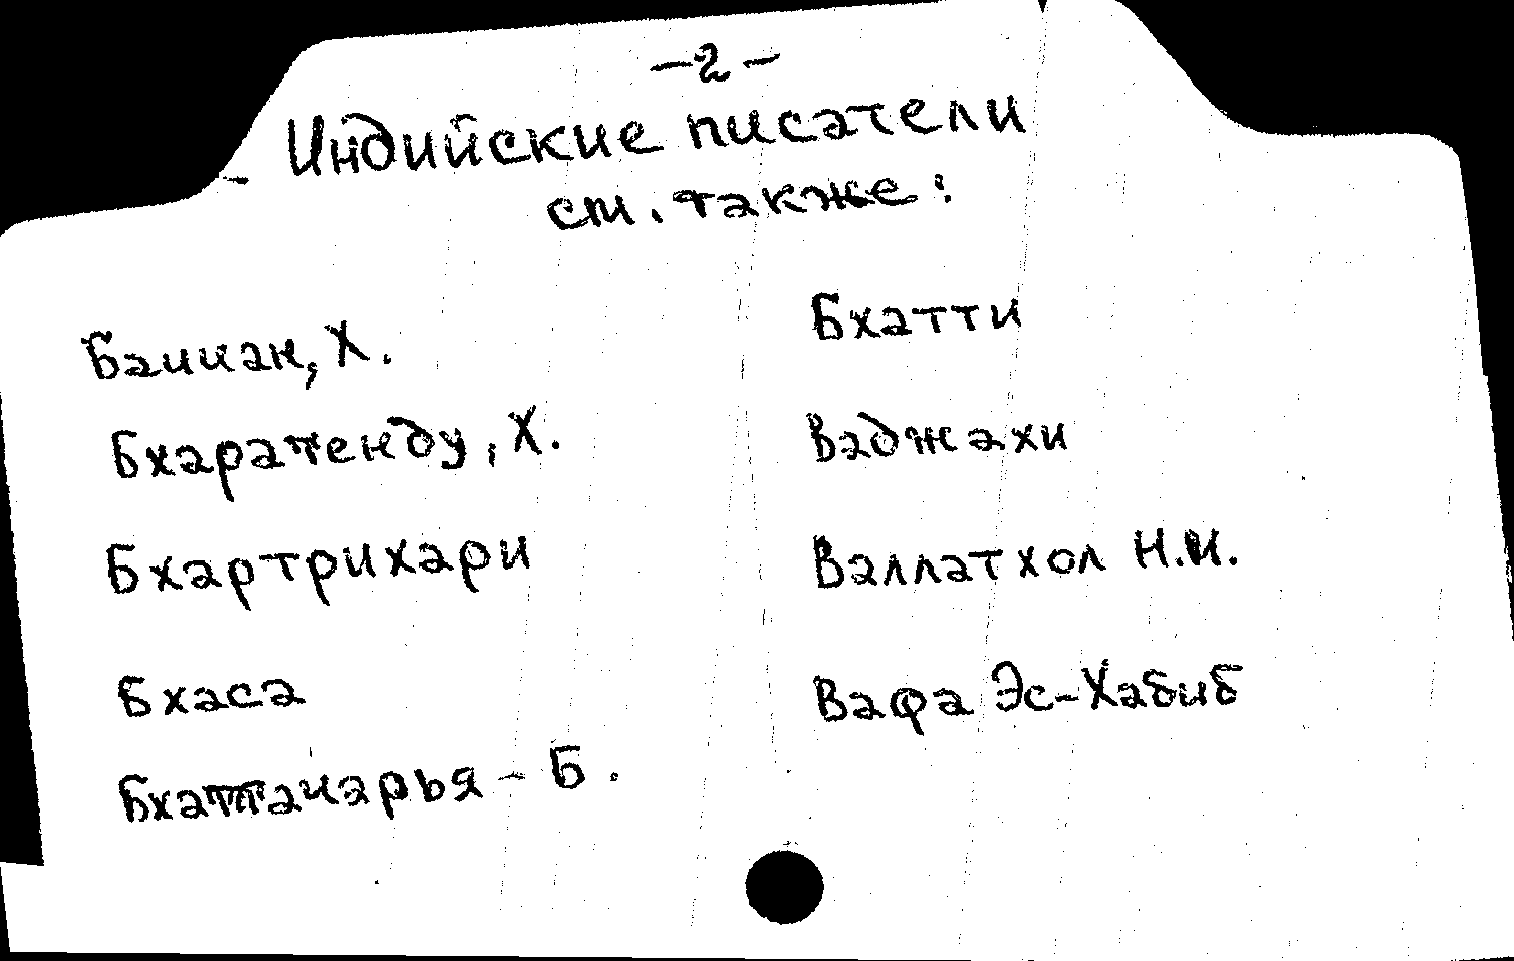 -2-
Индийские писатели
см. также:
Баччан, Х.
Бхаратенду, Х.
Бхартрихари
Бхаса
Бхаттачарья - Б.
Бхатти
Ваджахи
Валлатхол Н.М.
Вафа Эс-Хабиб